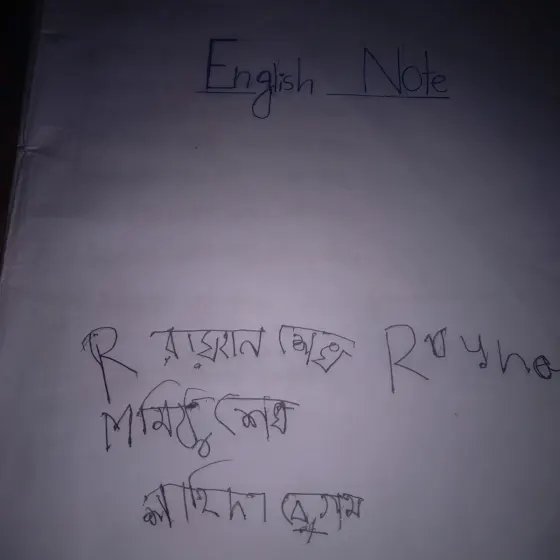 English Note
R রায়হান শেখ Rayha
M মিঠু শেখ
শাহিদা বেগম